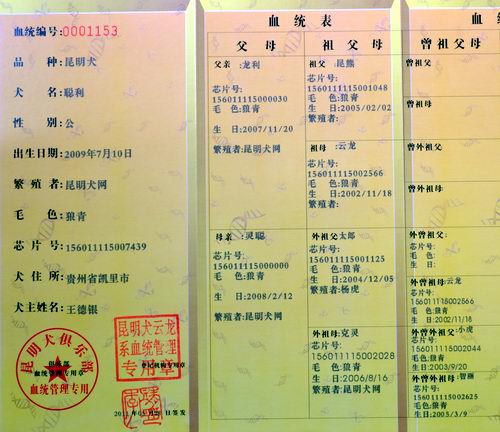 血统编号:0001153
品 种:昆明犬
犬 名:聪利
性 别:公
出生日期:2009年7月10日
繁 殖 者:昆明犬网
毛 色:狼青
芯 片 号:156011115007439
犬 住 所:贵州省凯里市
犬主姓名:王德银
昆明犬俱乐部
俱乐部
血统管理专用章
血统管理专用
昆明犬云龙
系血统管理
专用章
登记机构专用章
签发
血 统 表
父 母
父亲 :龙利
芯片号:
156011115000030
毛 色:狼青
生 日:2007/11/20
繁殖者:昆明犬网
母亲 :灵聪
芯片号:
156011115000000
毛 色:狼青
生 日:2008/2/12
繁殖者:昆明犬网
祖 父 母
祖父 :昆熊
芯片号:
156011115001048
毛 色:狼青
生 日:2005/02/02
繁殖者:
祖母 :云龙
芯片号:
156011115002566
毛 色:狼青
生 日:2002/11/18
繁殖者:
外祖父:太郎
芯片号:
156011115001125
毛 色:狼青
生 日:2004/12/05
繁殖者:杨虎
外祖母:克灵
芯片号:
156011115002028
毛 色:狼青
生 日:2006/8/16
繁殖者:昆明犬网
血
曾 祖 父 母
曾祖父:
曾祖母:
曾外祖父:
曾外祖母:
外曾祖父:
芯片号:
毛 色:
生 日:
外曾祖母:云龙
芯片号:
156011115002566
毛 色:狼青
生 日:2002/11/18
外曾外祖父:小虎
芯片号:
156011115002044
毛 色:狼青
生 日:2003/9/20
外曾外祖母:智丽
芯片号:
156011115002625
毛 色:狼青
生 日:2005/3/9